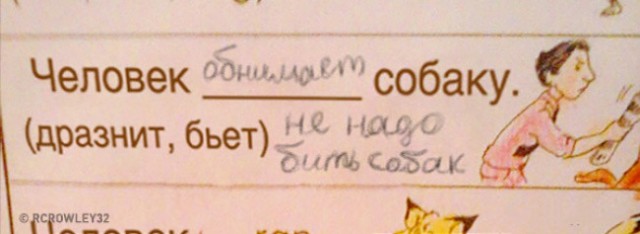 Человек обнимает собаку.
(дразнит, бьет) не надо
бить собак
© RCROWLEY32